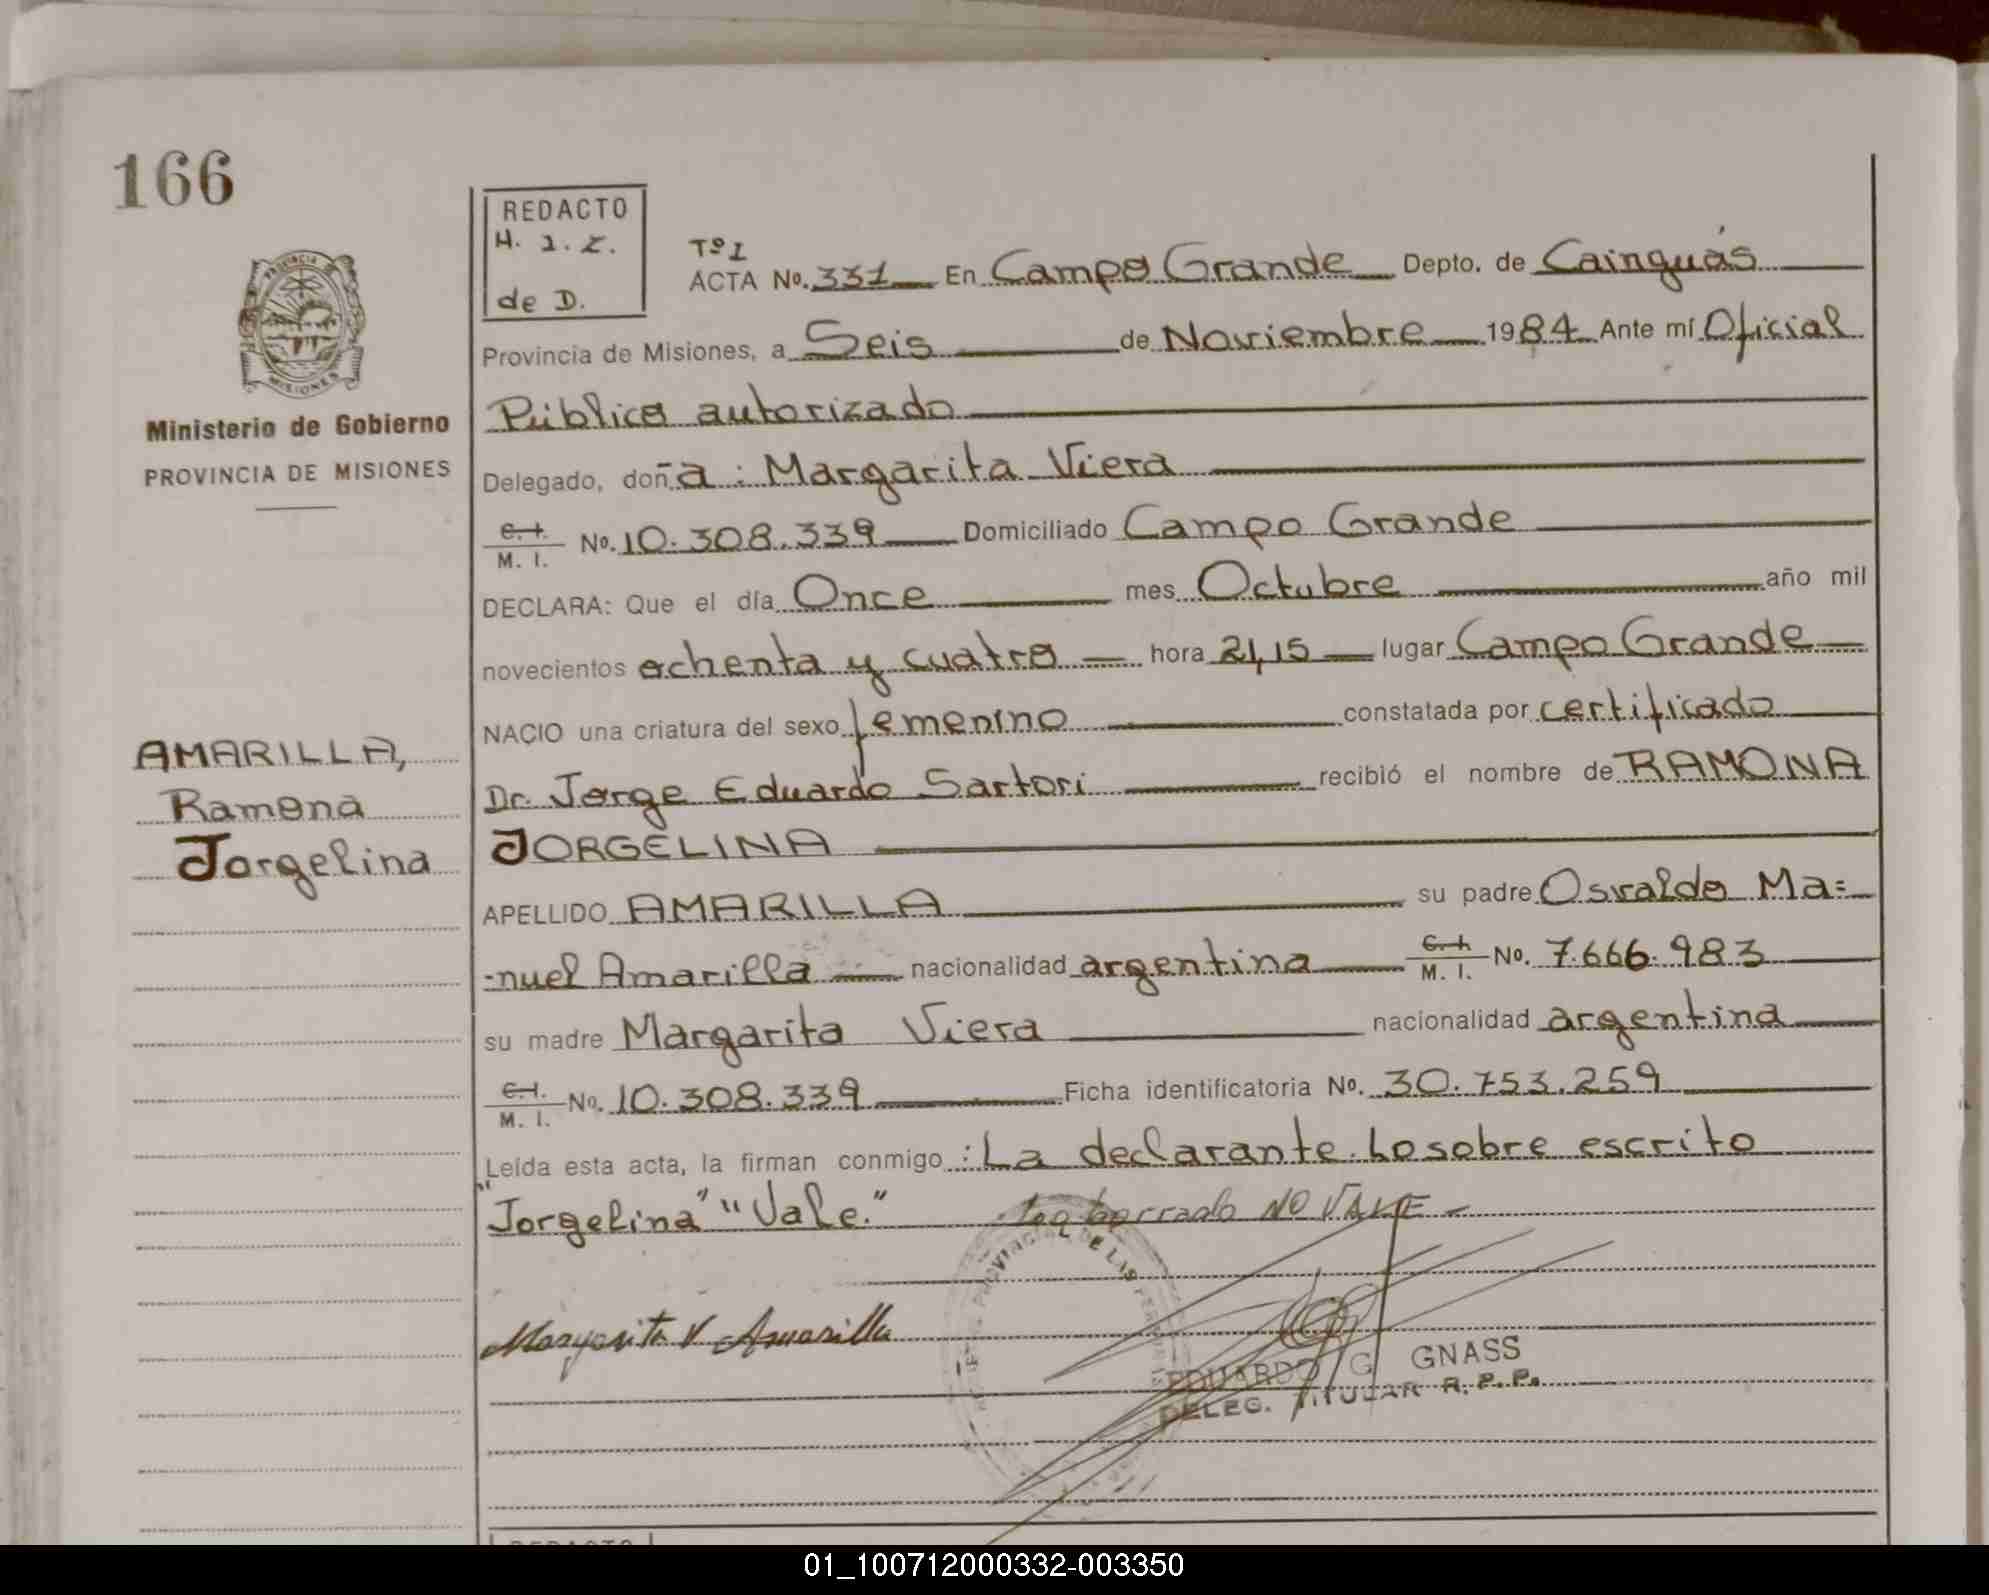 166
REDACTO
H. I. Z.
de D.
PROVINCIA DE
MISIONES
Ministerio de Gobierno
PROVINCIA DE MISIONES
Tº I
ACTA No. 331 En Campo Grande Depto. de Cainguás
Provincia de Misiones, a Seis de Noviembre 1984 Ante mí Oficial
Público autorizado
Delegado, doña : Margarita Viera
C. I.
M. I. No. 10.308.339 Domiciliado Campo Grande
DECLARA: Que el día Once mes Octubre año mil
novecientos ochenta y cuatro hora 21,15 lugar Campo Grande
NACIO una criatura del sexo femenino constatada por certificado
AMARILLA,
Ramona
Jorgelina
Dr. Jorge Eduardo Sartori recibió el nombre de RAMONA
JORGELINA
APELLIDO AMARILLA su padre Osvaldo Ma=
-nuel Amarilla nacionalidad argentina C. I. M. I. No. 7.666.983
su madre Margarita Viera nacionalidad argentina
C. I.
M. I. No. 10.308.339 Ficha identificatoria No. 30.753.259
Leída esta acta, la firman conmigo : La declarante. Lo sobre escrito
"Jorgelina" "Vale." Lo borrado NO VALE -
PROVINCIAL DE LAS
Margarita V. Amarilla
EDUARDO G GNASS
DELEG. TITULAR R. P. P.
REDACTO
01_100712000332-003350